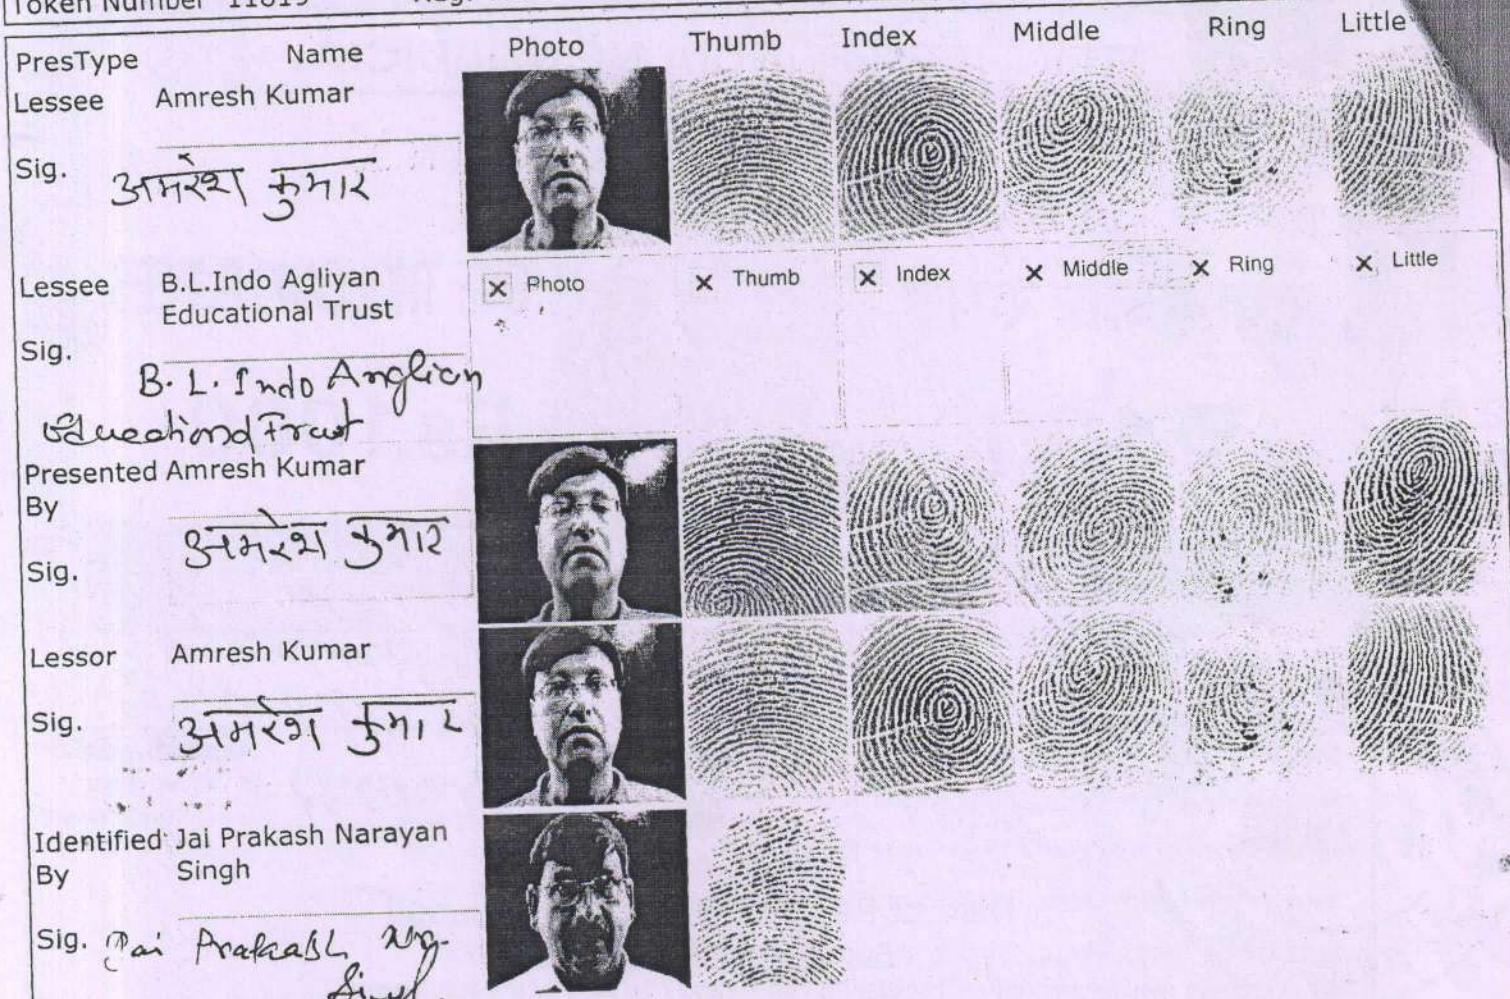 Token Number 11819
PresType Name Photo Thumb Index Middle Ring Little
Lessee Amresh Kumar
Sig. अमरेश कुमार
Lessee B.L.Indo Agliyan
Educational Trust
Photo Thumb Index Middle Ring Little
Sig.
B. L. Indo Anglian
Educational Trust
Presented Amresh Kumar
By
अमरेश कुमार
Sig.
Lessor Amresh Kumar
Sig. अमरेश कुमार
Identified Jai Prakash Narayan
By Singh
Sig. Jai Prakash
Singh